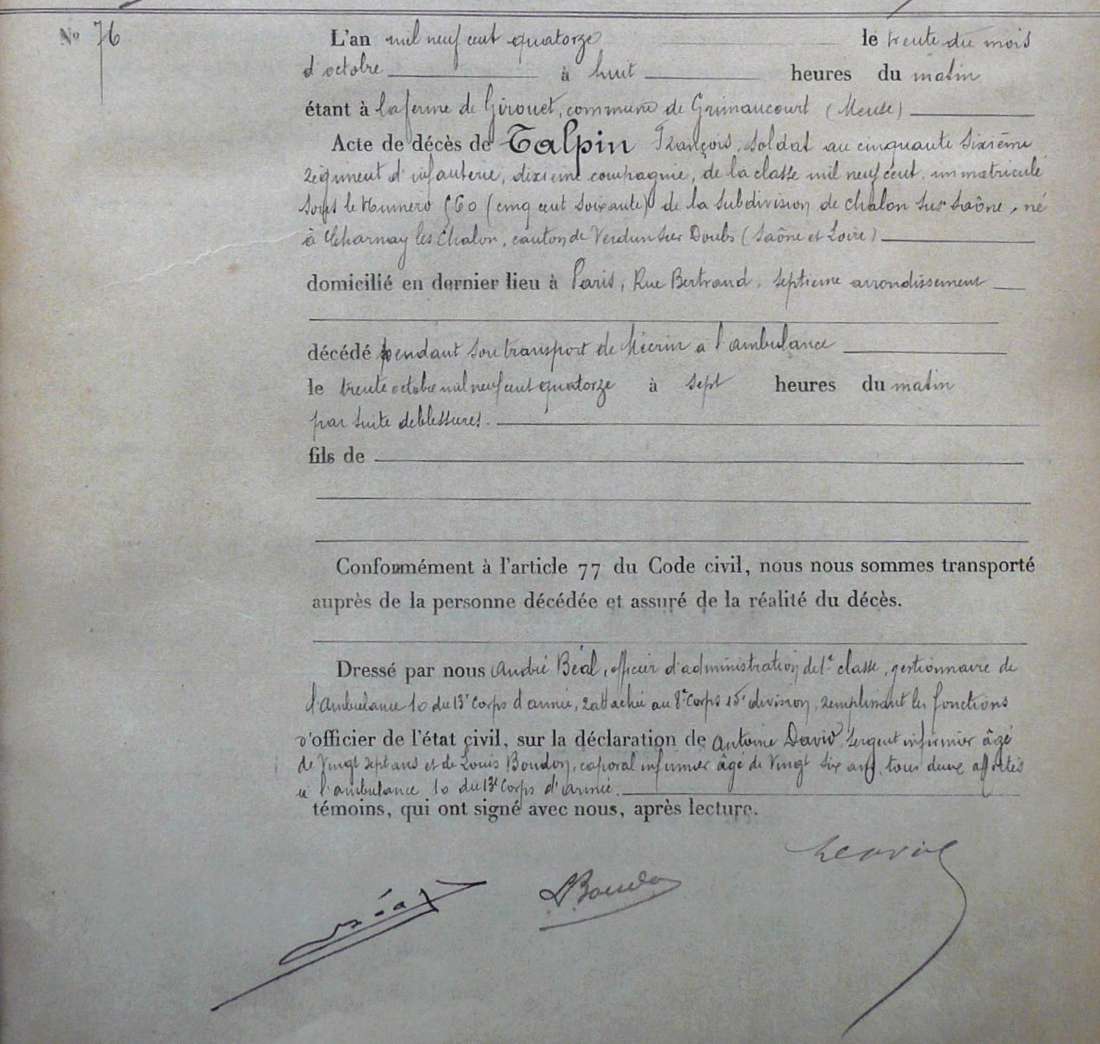 Nº 76
L'an mil neuf cent quatorze le trente du mois
d'octobre à huit heures du matin
étant à la ferme de Girouet, commune de Grimaucourt (Meuse)
Acte de décès de Talpin François, soldat au cinquante sixième
régiment d'infanterie, dixième compagnie, de la classe mil neuf cent, immatriculé
sous le Numéro 560 (cinq cent soixante) de la subdivision de Chalon sur Saône, né
à Charnay les Chalon, canton de Verdun sur Doubs (Saône et Loire)
domicilié en dernier lieu à Paris, Rue Bertrand, septième arrondissement
décédé pendant son transport de Mécrin à l'ambulance
le trente octobre mil neuf cent quatorze à sept heures du matin
par suite de blessures.
fils de
Conformément à l'article 77 du Code civil, nous nous sommes transporté
auprès de la personne décédée et assuré de la réalité du décès.
Dressé par nous André Béal, officier d'administration de 1e classe, gestionnaire de
l'Ambulance 10 du 13e Corps d'armée, rattachée au 8e Corps 15e division, remplissant les fonctions
d'officier de l'état civil, sur la déclaration de Antoine David, sergent infirmier âgé
de Vingt sept ans et de Louis Boudon, caporal infirmier âgé de Vingt six ans, tous deux affectés
à l'ambulance 10 du 13e Corps d'armée.
témoins, qui ont signé avec nous, après lecture.
Béal